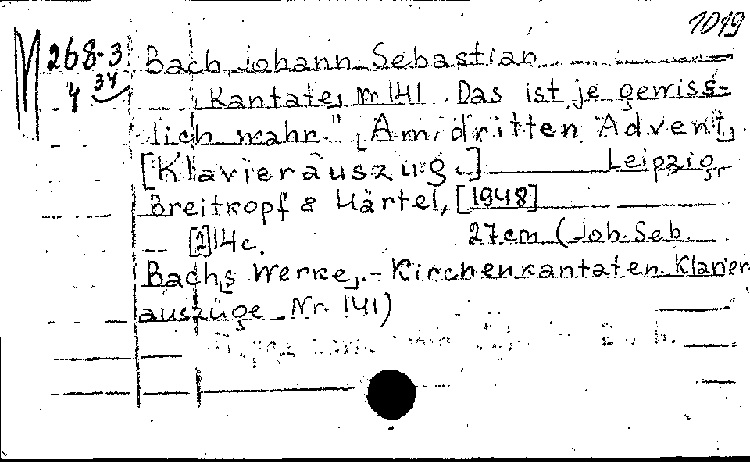 1019
M 268-3 Bach, Johann Sebastian
4 34 Kantate, Nr 141. "Das ist je gewiss-
lich wahr." [Am dritten Advent].
[Klavierauszug.] Leipzig,
Breitkopf & Härtel, [1948]
[2]14c. 27cm (Joh. Seb.
Bachs Werke. - Kirchenkantaten. Klavier
auszüge Nr. 141)